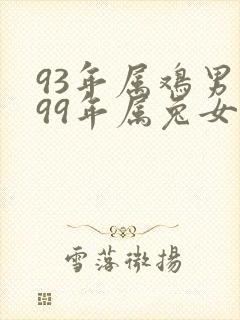 93年属鸡男
99年属兔女
雪落微揚